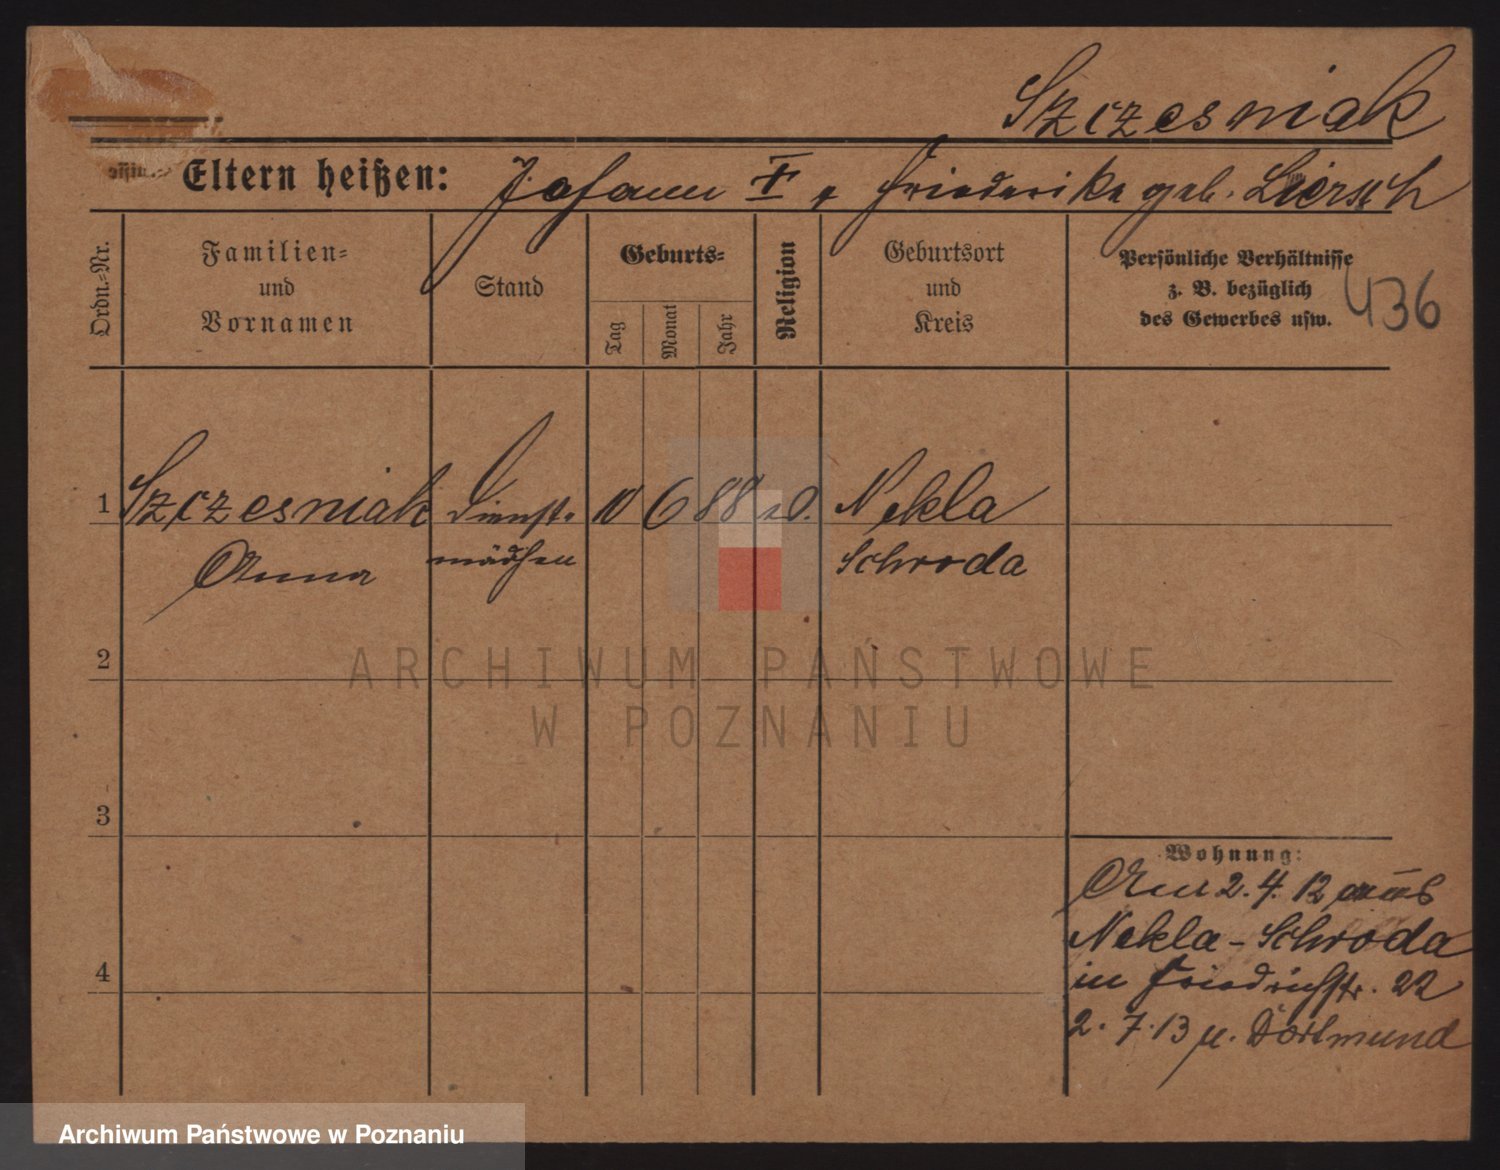 Szczesniak
Eltern heißen: Johann I u Friederike geb. Liersch
Ordn.-Nr.
Familien-
und
Vornamen
Stand
Geburts-
Tag
Monat
Jahr
Religion
Geburtsort
und
Kreis
Persönliche Verhältnisse
z. B. bezüglich
des Gewerbes usw.
436
1 Szczesniak Dienst- 10 6 88 Nekla
Anna mädchen Schroda
2
ARCHIWUM PAŃSTWOWE
W POZNANIU
3
Wohnung:
Am 2.4.12 aus
Nekla - Schroda
4
in Friedrichstr. 22
2.7.13 n. Dortmund
Archiwum Państwowe w Poznaniu